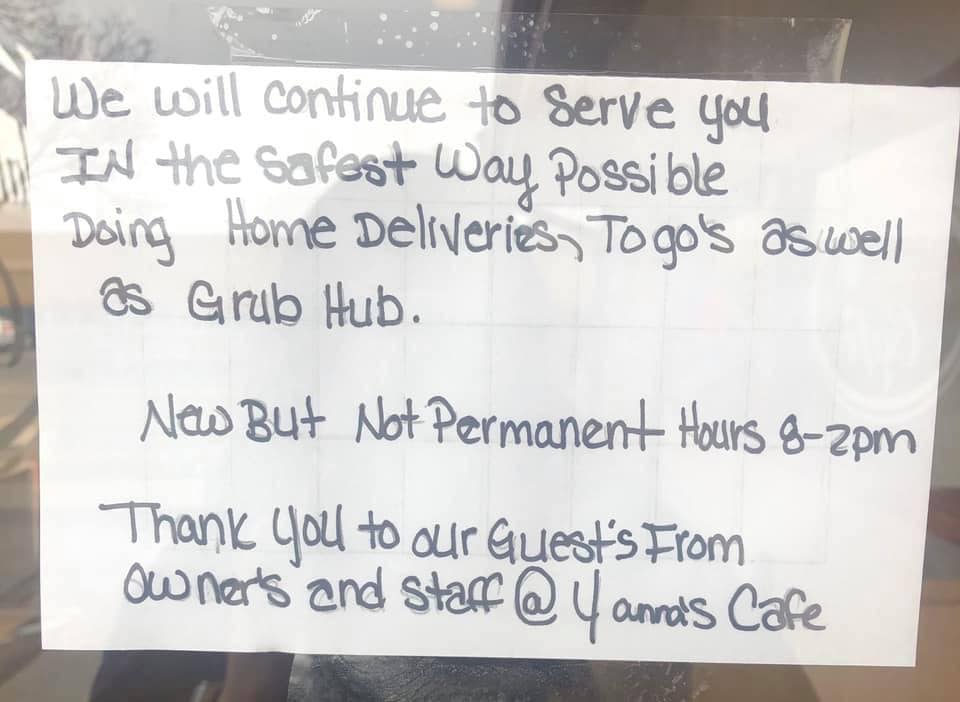 We will continue to Serve you
IN the Safest Way Possible
Doing Home Deliveries, To go's as well
as Grub Hub.
New But Not Permanent Hours 8-2pm
Thank you to our Guest's From
Owner's and Staff @ Yanna's Cafe